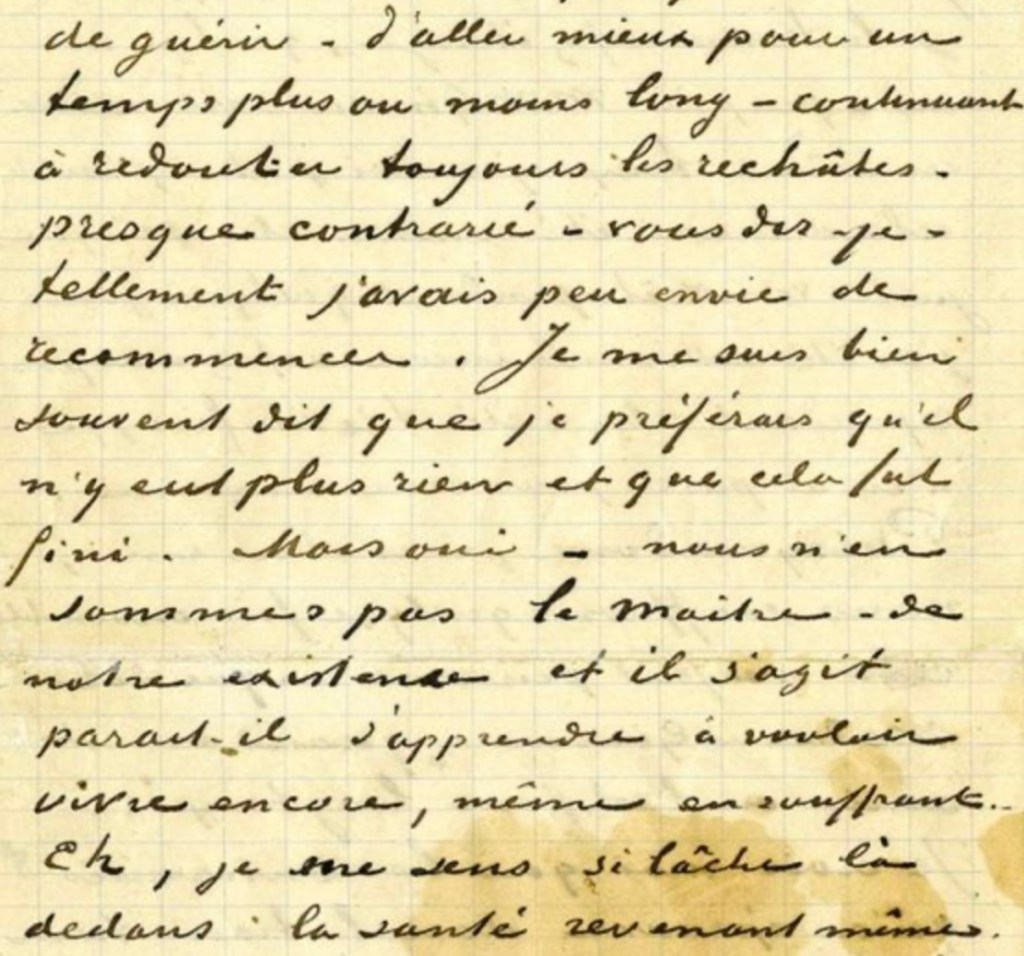 de guérir - d'aller mieux pour un
temps plus ou moins long - continuant
à redouter toujours les rechûtes -
presque contrarié - vous dis-je -
tellement j'avais peu envie de
recommencer. Je me suis bien
souvent dit que je préférais qu'il
n'y eut plus rien et que cela fut
fini. Mais oui - nous n'en
sommes pas le maître - de
notre existence et il s'agit
parait-il d'apprendre à vouloir
vivre encore, même en souffrant.
Eh, je me sens si lâche là
dedans la santé revenant même.